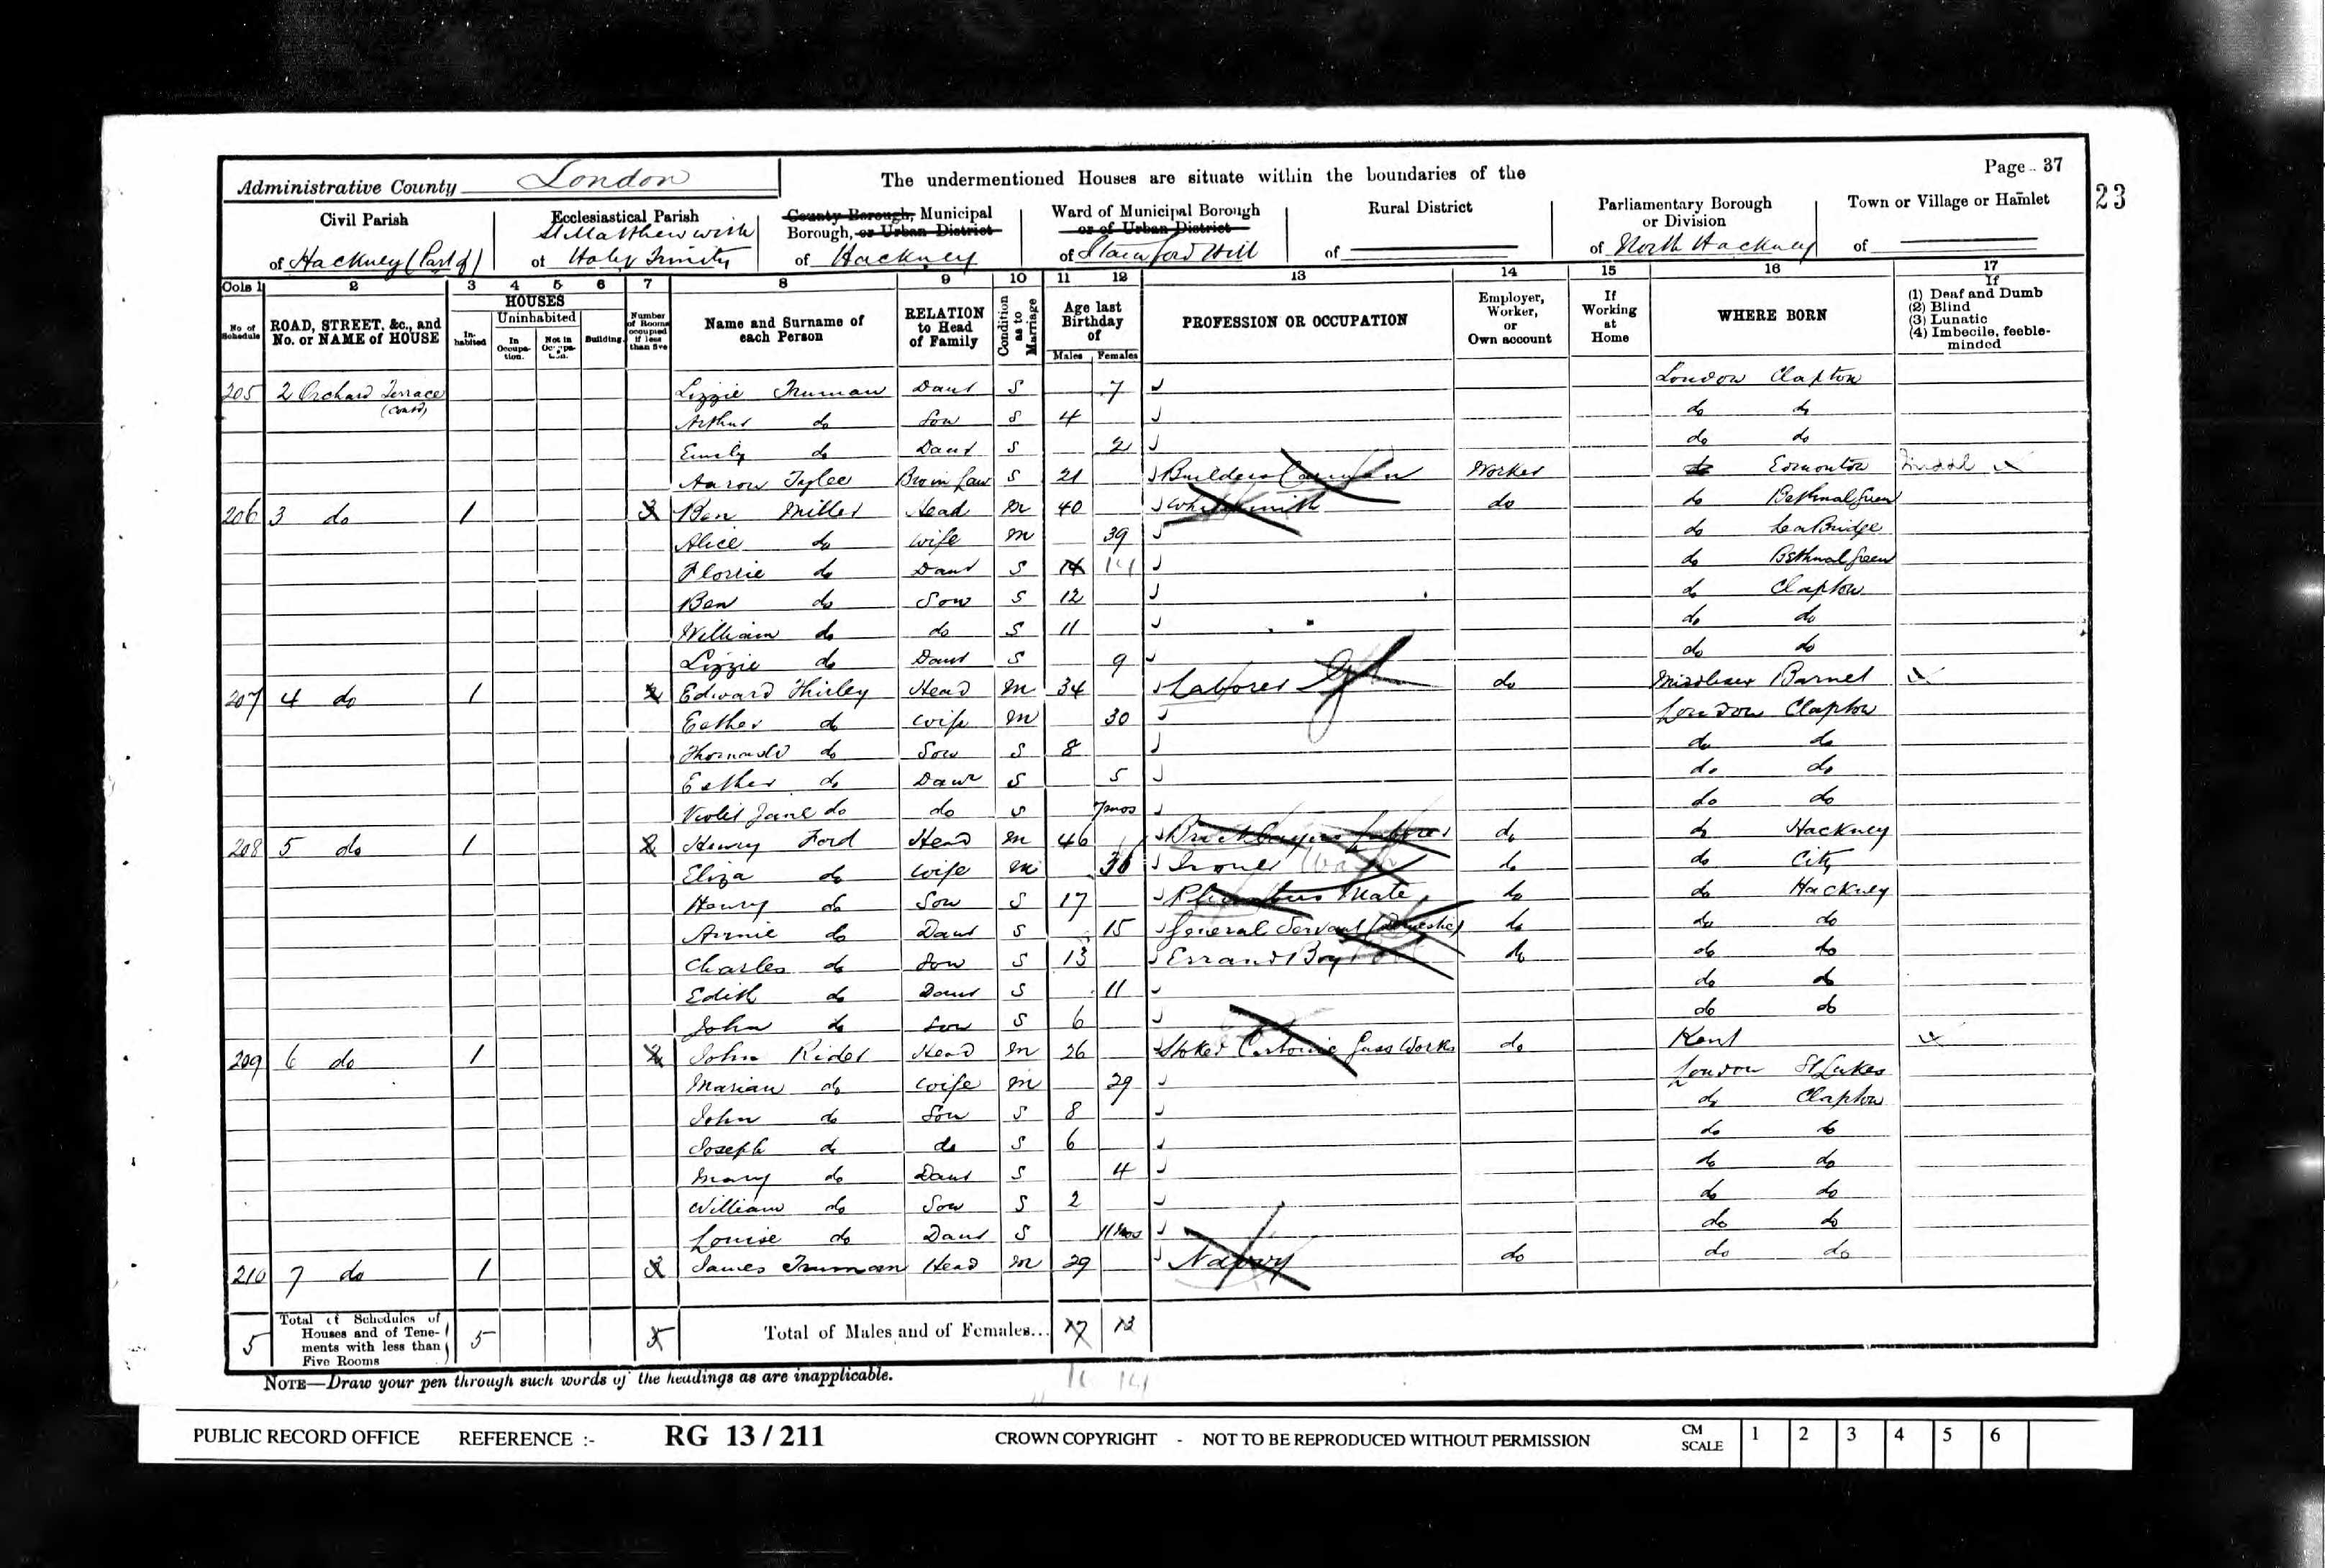 Page 37
23
Administrative County London
The undermentioned Houses are situate within the boundaries of the
Civil Parish of Hackney (Part of)
Ecclesiastical Parish of St Matthew with Holy Trinity
County Borough, Municipal Borough, or Urban District of Hackney
Ward of Municipal Borough or of Urban District of Stamford Hill
Rural District of
Parliamentary Borough or Division of North Hackney
Town or Village or Hamlet of
Cols 1 2 3 4 5 6 7 8 9 10 11 12 13 14 15 16 17
No of Schedule
ROAD, STREET, &c., and No. or NAME of HOUSE
HOUSES
Inhabited
Uninhabited
In Occupation.
Not in Occupation.
Building
Number of Rooms occupied if less than five
Name and Surname of each Person
RELATION to Head of Family
Condition as to Marriage
Age last Birthday of
Males Females
PROFESSION OR OCCUPATION
Employer, Worker, or Own account
If Working at Home
WHERE BORN
If (1) Deaf and Dumb (2) Blind (3) Lunatic (4) Imbecile, feeble-minded
205 2 Orchard Terrace (contd) Lizzie Truman Daur S 7 London Clapton
Arthur do Son S 4 do do
Emily do Daur S 2 do do
Aaron Bro in Law S 21 Builders Worker do Edmonton
206 3 do 1 3 Ben Miller Head M 40 Whitesmith do do Bethnal Green
Alice do Wife M 39 do Lea Bridge
Florrie do Daur S 14 14 do Bethnal Green
Ben do Son S 12 do Clapton
William do do S 11 do do
Lizzie do Daur S 9 do do
207 4 do 1 2 Edward Hurley Head M 34 Laborer do Middlesex Barnet
Esther do Wife M 30 London Clapton
do Son S 8 do do
Esther do Daur S 5 do do
Violet Jane do do S 7mos do do
208 5 do 1 2 Henry Ford Head M 46 Bricklayers Laborer do do Hackney
Eliza do Wife M 36 Ironer do do City
Henry do Son S 17 Plumbers Mate do do Hackney
Annie do Daur S 15 General Servant (Domestic) do do do
Charles do Son S 13 Errand Boy do do do
Edith do Daur S 11 do do
John do Son S 6 do do
209 6 do 1 2 John Rider Head M 26 Stoker Gass Works do Kent
Marian do Wife M 29 London St Lukes
John do Son S 8 do Clapton
Joseph do do S 6 do do
Mary do Daur S 4 do do
William do Son S 2 do do
Louise do Daur S 11mos do do
210 7 do 1 2 James Truman Head M 29 Navvy do do do
5 Total of Schedules of Houses and of Tenements with less than Five Rooms 5 5 Total of Males and of Females... 17 13
16 14
NOTE—Draw your pen through such words of the headings as are inapplicable.
PUBLIC RECORD OFFICE REFERENCE :- RG 13/211 CROWN COPYRIGHT - NOT TO BE REPRODUCED WITHOUT PERMISSION CM SCALE 1 2 3 4 5 6